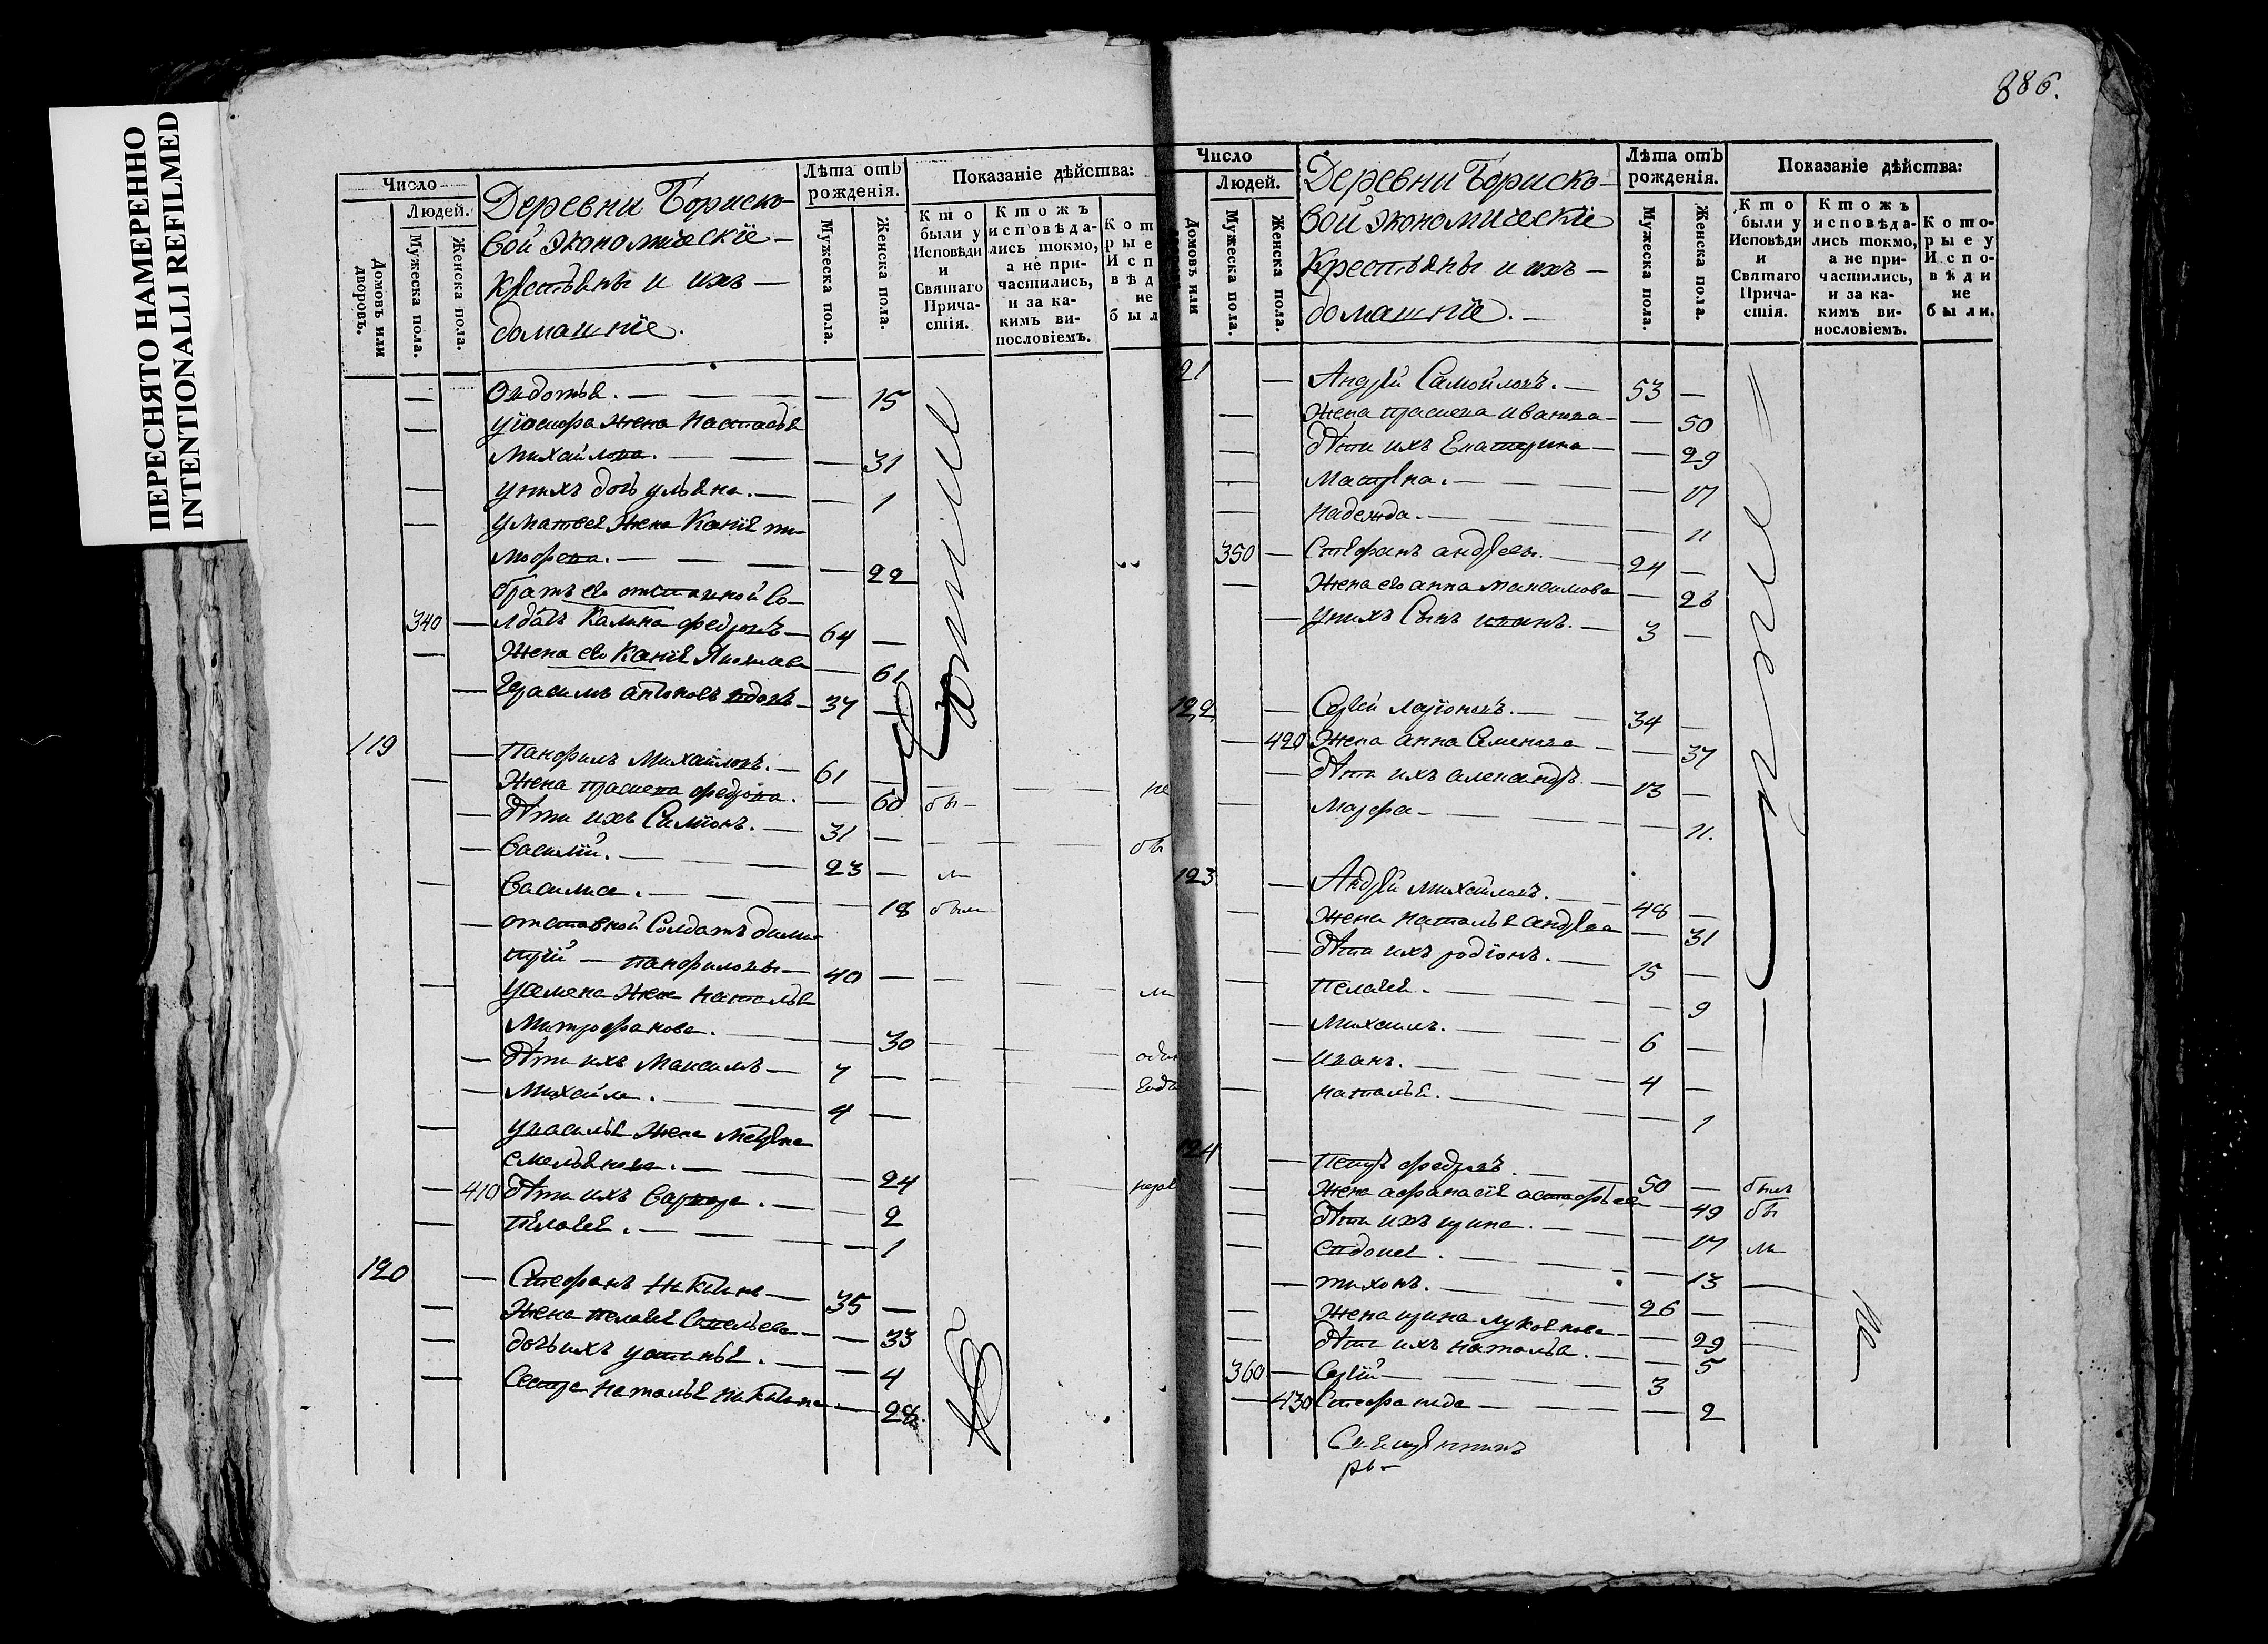 ПЕРЕСНЯТО НАМЕРЕННО
INTENTIONALLI REFILMED
Число
Людей.
Домовъ или дворовъ.
Мужеска пола.
Женска пола.
Деревни Бориско-
вой экономическїе
крестьяны и ихъ
домашнїе.
Лѣта отъ рожденія.
Мужеска пола.
Женска пола.
Показаніе дѣйства:
Кто были у Исповѣди и Святаго Причастія.
Ктожъ исповѣдались токмо, а не причастились, и за какимъ винословіемъ.
Кот
рые
Исп
вѣд
не
был
— Овдотья. — — 15
— у їосифа жена настасья
михайлова. — — 31
— у нихъ дочь ульяна. — — 1
— у матвея жена Канїя ти-
мофева. — — 22
братъ его отставной Со-
340 — лдатъ Калина федровъ — 64 —
— Жена его Канїя — 61
— Герасимъ антоновъ вдовъ — 37 —
119 — Панфилъ Михайловъ. — 61 —
— Жена прасковa федрова. — 60 бы- не
— дѣти ихъ Симїонъ. — 31 — бы
— Василїй. — 23 — ли
— Василиса. — 18 были
— отставной Солдатъ дими-
трїй — панфиловъ — 40 —
— у семена жена наталья ли
Митрофанова. — 30
— дѣти ихъ Максимъ — 7 —
— Михайла. — 4 —
— у василья жена
емельянова. — 24
— 410 дѣти ихъ варвара. — 2
— Пелагея. — 1
120 — Стефанъ Никитинъ — 35 —
— Жена пелагея Савельева — 33
— дочь ихъ устинья. — 4
— Сестра наталья никитина — 28.
886.
Число
Людей.
Домовъ или
Мужеска пола.
Женска пола.
Деревни Бориско-
вой экономическїе
Крестьяны и ихъ
домашнїе.
Лѣта отъ рожденія.
Мужеска пола.
Женска пола.
Показаніе дѣйства:
Кто были у Исповѣди и Святаго Причастія.
Ктожъ исповѣдались токмо, а не причастились, и за какимъ винословіемъ.
Которые у Исповѣди не были.
21 — Андрѣй Самойловъ. — 53 —
— Жена прасковa иванова — 50
— дѣти ихъ Екатерина — 29
— Матрена. — 17
— надежда. — 11
350 — Стефанъ андрѣевъ. — 24 —
— Жена его анна максимова — 26
— у нихъ Сынъ иванъ. — 3 —
122 — Сергѣй ларїоновъ. — 34 —
— 420 Жена анна Семенова — 37
— дѣти ихъ александръ. — 13 —
— Марфа — 11.
123 — Андрѣй михайловъ. — 48 —
— Жена наталья андрѣева — 31
— дѣти ихъ родїонъ. — 15 —
— Пелагея. — 9
— Михаилъ. — 6 —
— Иванъ. — 4 —
— наталья. — 1
124 — Петръ федровъ. — 50 — былъ
— Жена афанасїя астафьева — 49 бы
— дѣти ихъ ирина. — 17 ли
— евдокея. — 13
— тихонъ. — 26 —
— Жена ирина лукоянова — 29
— дѣти ихъ наталья. — 5
360 — Сергїй — 3
— 430 Стефанида — 2